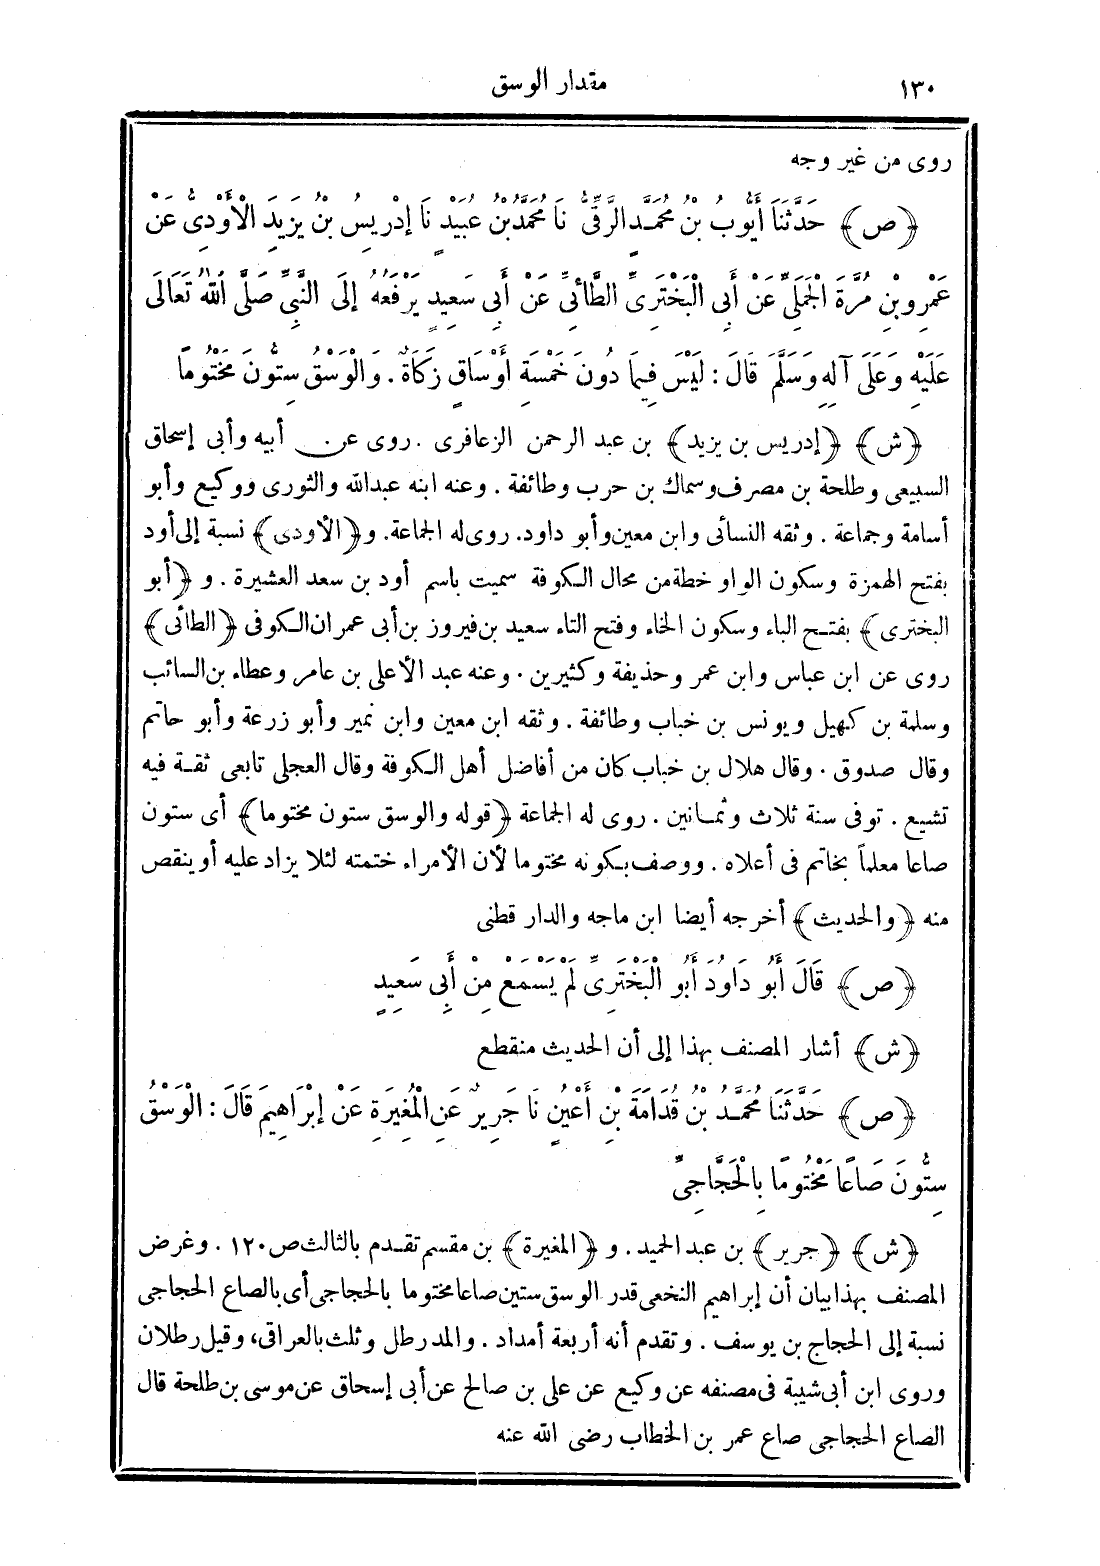 ١٣٠
مقدار الوسق
روى من غير وجه
﴿ص﴾ حَدَّثَنَا أَيُّوبُ بْنُ مُحَمَّدٍ الرَّقِّىُّ نَا مُحَمَّدُ بْنُ عُبَيْدٍ نَا إِدْرِيسُ بْنُ يَزِيدَ الْأَوْدِىُّ عَنْ
عَمْرِو بْنِ مُرَّةَ الْجَمَلِىِّ عَنْ أَبِى الْبَخْتَرِىِّ الطَّائِىِّ عَنْ أَبِى سَعِيدٍ يَرْفَعُهُ إِلَى النَّبِىِّ صَلَّى اللهُ تَعَالَى
عَلَيْهِ وَعَلَى آلِهِ وَسَلَّمَ قَالَ : لَيْسَ فِيمَا دُونَ خَمْسَةِ أَوْسَاقٍ زَكَاةٌ . وَالْوَسْقُ سِتُّونَ مَخْتُومًا
﴿ش﴾ ﴿إدريس بن يزيد﴾ بن عبد الرحمن الزعافرى . روى عن أبيه وأبى إسحاق
السبيعى وطلحة بن مصرف وسماك بن حرب وطائفة . وعنه ابنه عبدالله والثورى ووكيع وأبو
أسامة وجماعة . وثقه النسائى وابن معين وأبو داود. روى له الجماعة. و﴿الأودى﴾ نسبة إلى أود
بفتح الهمزة وسكون الواو خطة من محال الكوفة سميت باسم أود بن سعد العشيرة . و ﴿أبو
البخترى﴾ بفتح الباء وسكون الخاء وفتح التاء سعيد بن فيروز بن أبى عمران الكوفى ﴿الطائى﴾
روى عن ابن عباس وابن عمر وحذيفة وكثيرين . وعنه عبد الأعلى بن عامر وعطاء بن السائب
وسلمة بن كهيل ويونس بن خباب وطائفة . وثقه ابن معين وابن نمير وأبو زرعة وأبو حاتم
وقال صدوق . وقال هلال بن خباب كان من أفاضل أهل الكوفة وقال العجلى تابعى ثقة فيه
تشيع . توفى سنة ثلاث وثمانين . روى له الجماعة ﴿قوله والوسق ستون مختوما﴾ أى ستون
صاعا معلماً بخاتم فى أعلاه . ووصف بكونه مختوما لأن الأمراء ختمته لئلا يزاد عليه أو ينقص
منه ﴿والحديث﴾ أخرجه أيضا ابن ماجه والدار قطنى
﴿ص﴾ قَالَ أَبُو دَاوُدَ أَبُو الْبَخْتَرِىِّ لَمْ يَسْمَعْ مِنْ أَبِى سَعِيدٍ
﴿ش﴾ أشار المصنف بهذا إلى أن الحديث منقطع
﴿ص﴾ حَدَّثَنَا مُحَمَّدُ بْنُ قُدَامَةَ بْنِ أَعْيَنٍ نَا جَرِيرٌ عَنِ الْمُغِيرَةِ عَنْ إِبْرَاهِيمَ قَالَ : الْوَسْقُ
سِتُّونَ صَاعًا مَخْتُومًا بِالْحَجَّاجِىِّ
﴿ش﴾ ﴿جرير﴾ بن عبد الحميد . و ﴿المغيرة﴾ بن مقسم تقدم بالثالث ص ١٢٠ . وغرض
المصنف بهذا بيان أن إبراهيم النخعى قدر الوسق ستين صاعا مختوما بالحجاجى أى بالصاع الحجاجى
نسبة إلى الحجاج بن يوسف . وتقدم أنه أربعة أمداد . والمد رطل وثلث بالعراقى، وقيل رطلان
وروى ابن أبى شيبة فى مصنفه عن وكيع عن على بن صالح عن أبى إسحاق عن موسى بن طلحة قال
الصاع الحجاجى صاع عمر بن الخطاب رضى الله عنه